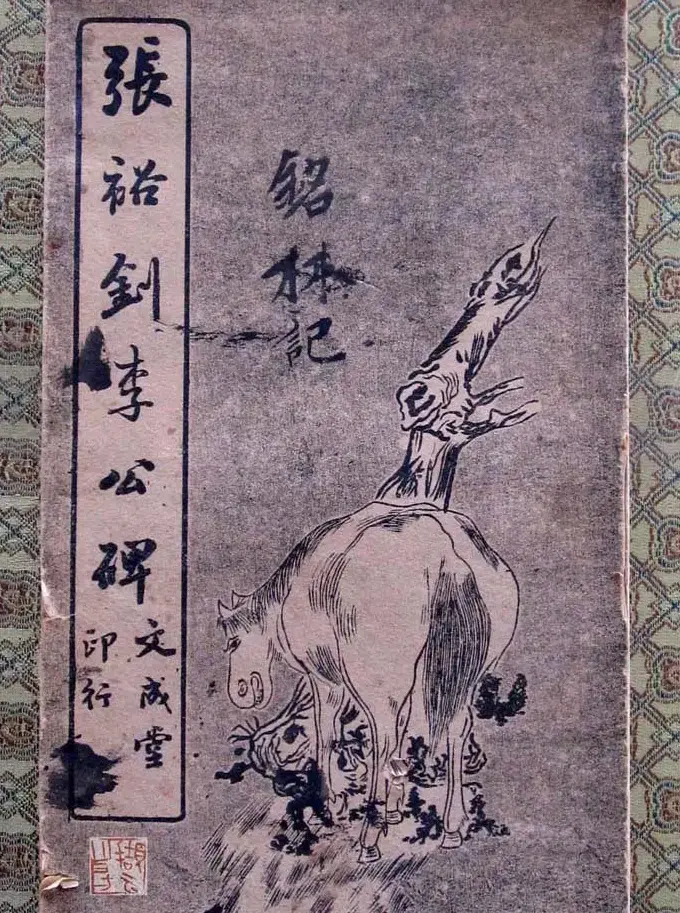 銘林記
張裕釗李公碑
文成堂
印行